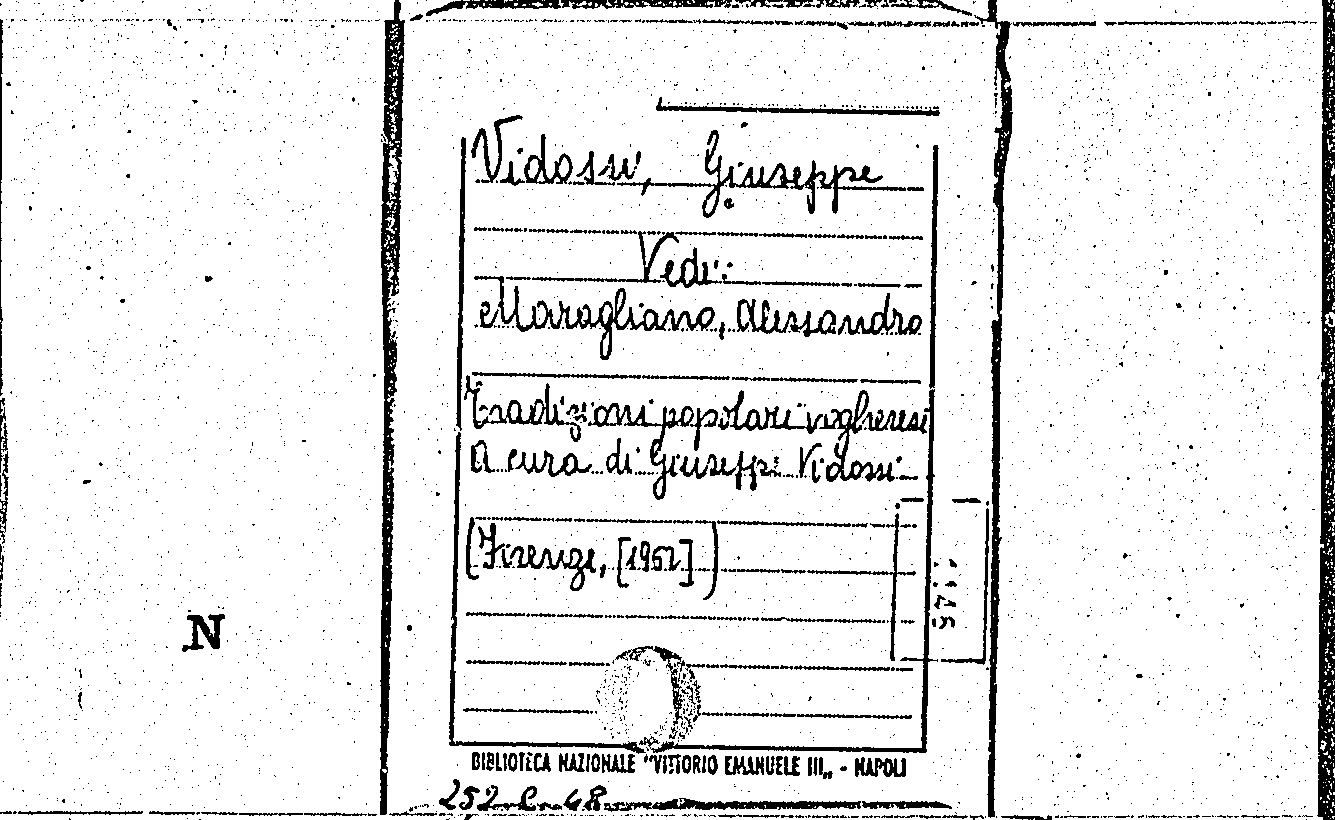 Vidossi, Giuseppe
Vedi:
Maragliano, Alessandro
Tradizioni popolari vogheresi
A cura di Giuseppe Vidossi.
(Firenze, [1962])
N
BIBLIOTECA NAZIONALE "VITTORIO EMANUELE III„ - NAPOLI
252 C 48